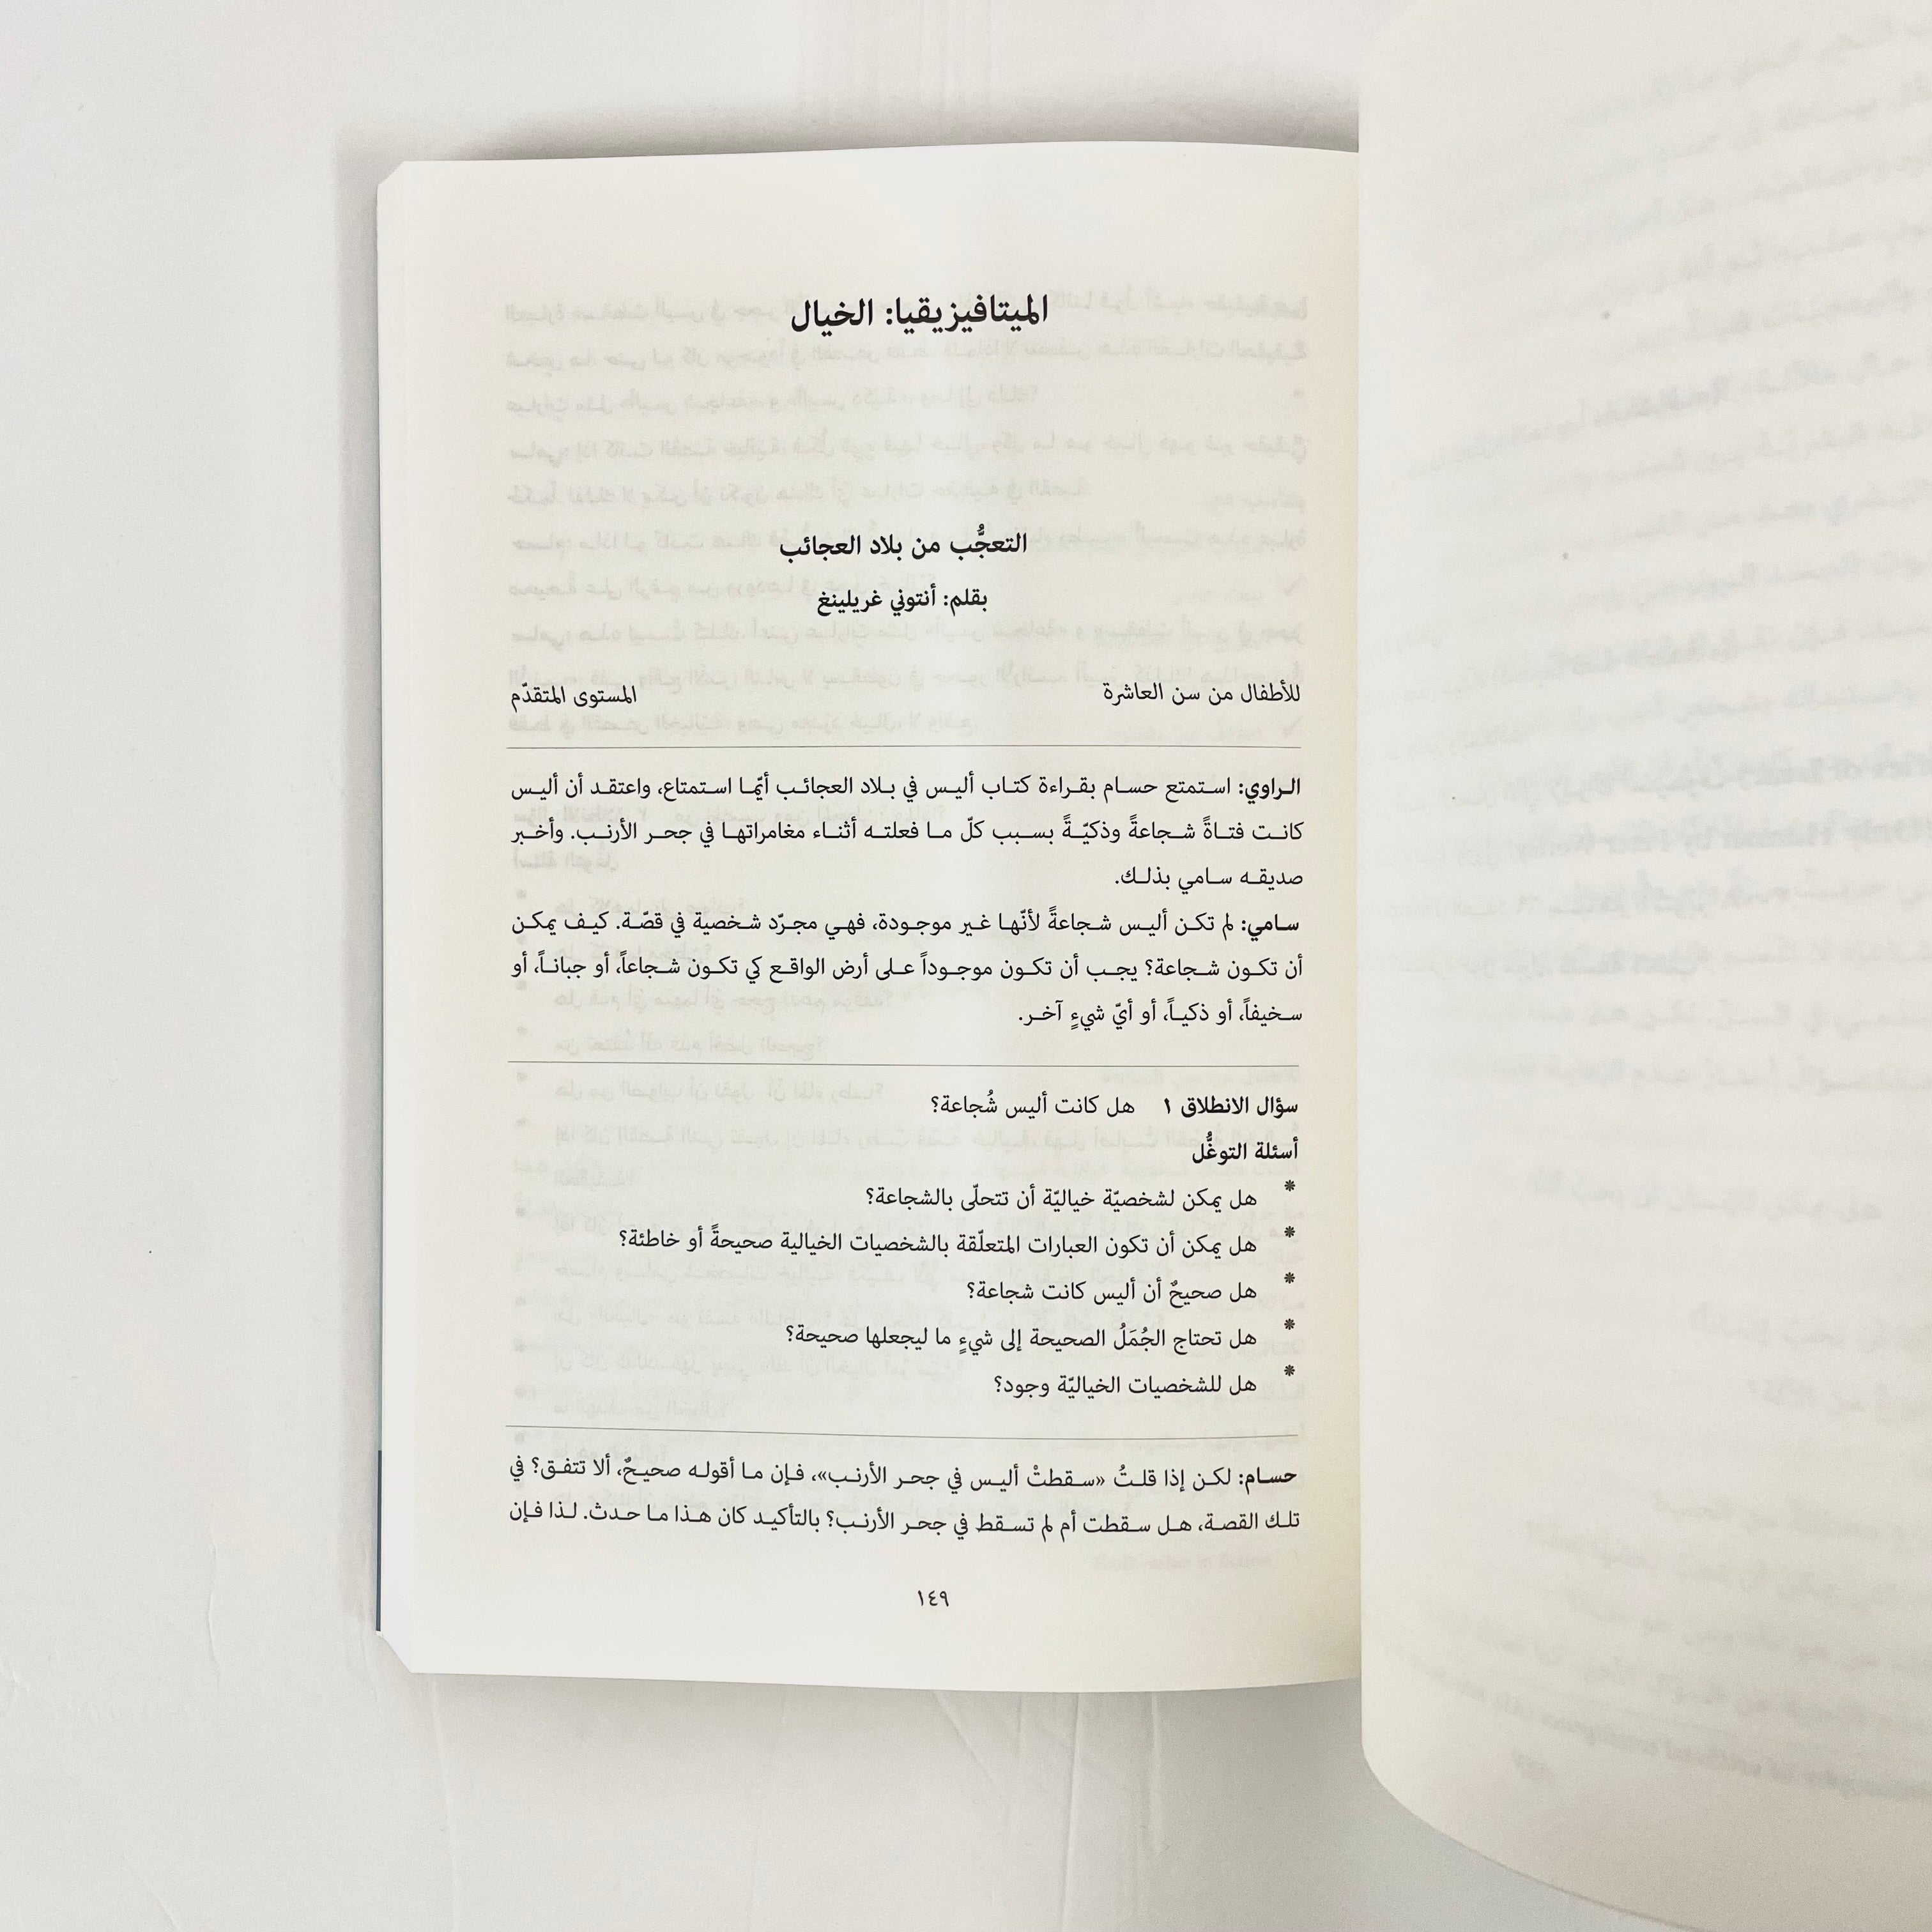 الميتافيزيقيا: الخيال
التعجُّب من بلاد العجائب
بقلم: أنتوني غريلينغ
للأطفال من سن العاشرة المستوى المتقدّم
الراوي: استمتع حسام بقراءة كتاب أليس في بلاد العجائب أيّما استمتاع، واعتقد أن أليس
كانت فتاةً شجاعةً وذكيّةً بسبب كلّ ما فعلته أثناء مغامراتها في جحر الأرنب. وأخبر
صديقه سامي بذلك.
سامي: لم تكن أليس شجاعةً لأنّها غير موجودة، فهي مجرّد شخصية في قصّة. كيف يمكن
أن تكون شجاعة؟ يجب أن تكون موجوداً على أرض الواقع كي تكون شجاعاً، أو جباناً، أو
سخيفاً، أو ذكياً، أو أيّ شيءٍ آخر.
سؤال الانطلاق ١ هل كانت أليس شُجاعة؟
أسئلة التوغُّل
* هل يمكن لشخصيّة خياليّة أن تتحلّى بالشجاعة؟
* هل يمكن أن تكون العبارات المتعلّقة بالشخصيات الخيالية صحيحةً أو خاطئة؟
* هل صحيحٌ أن أليس كانت شجاعة؟
* هل تحتاج الجُمَلُ الصحيحة إلى شيءٍ ما ليجعلها صحيحة؟
* هل للشخصيات الخياليّة وجود؟
حسام: لكن إذا قلتُ «سقطتْ أليس في جحر الأرنب»، فإن ما أقوله صحيحٌ، ألا تتفق؟ في
تلك القصة، هل سقطت أم لم تسقط في جحر الأرنب؟ بالتأكيد كان هذا ما حدث. لذا فإن
١٤٩